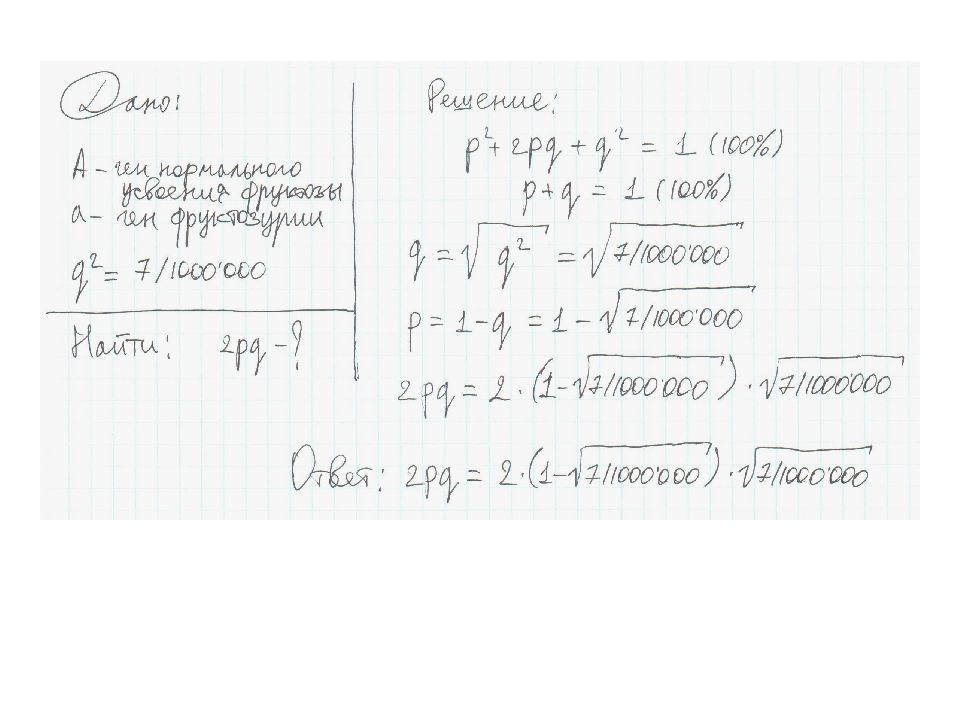 Дано:
А – ген нормального
усвоения фруктозы
а – ген фруктозурии
q² = 7/1000'000
Найти: 2pq – ?
Решение:
p² + 2pq + q² = 1 (100%)
p + q = 1 (100%)
q = √q² = √7/1000'000
p = 1 – q = 1 – √7/1000'000
2pq = 2 · (1 – √7/1000'000) · √7/1000'000
Ответ: 2pq = 2 · (1 – √7/1000'000) · √7/1000'000